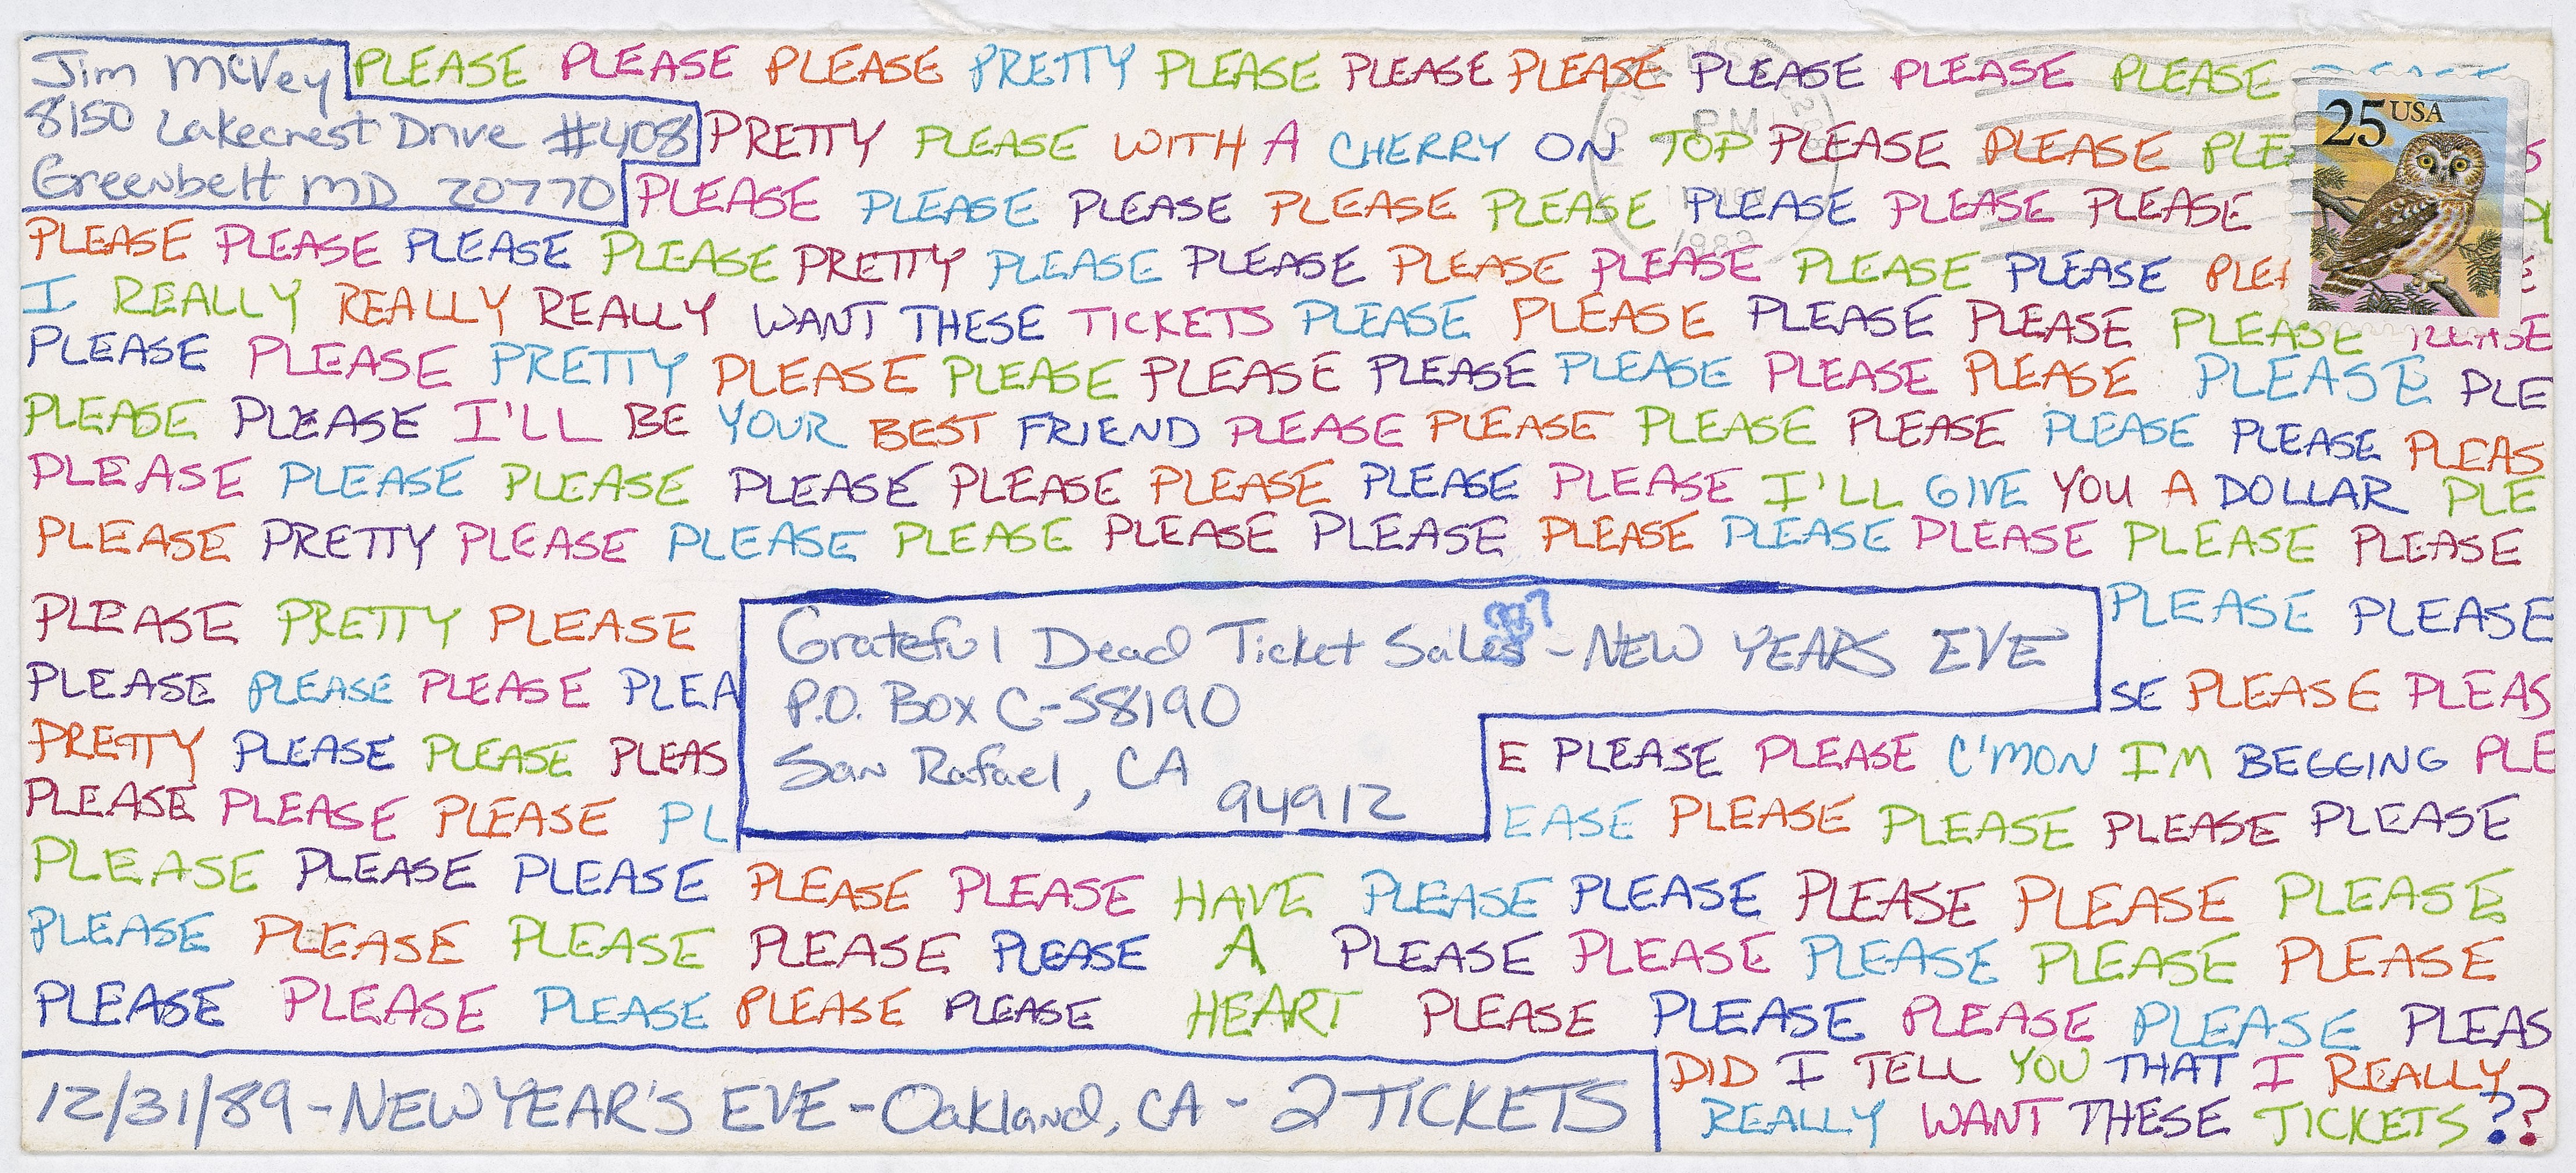 Jim McVey
8150 Lakecrest Drive #408
Greenbelt MD 20770
PLEASE PLEASE PLEASE PRETTY PLEASE PLEASE PLEASE PLEASE PLEASE PLEASE
PRETTY PLEASE WITH A CHERRY ON TOP PLEASE PLEASE PLE
PLEASE PLEASE PLEASE PLEASE PLEASE PLEASE PLEASE PLEASE
25 USA
PM
1989
PLEASE PLEASE PLEASE PLEASE PRETTY PLEASE PLEASE PLEASE PLEASE PLEASE PLEASE PLEA
I REALLY REALLY REALLY WANT THESE TICKETS PLEASE PLEASE PLEASE PLEASE PLEASE PLEASE
PLEASE PLEASE PRETTY PLEASE PLEASE PLEASE PLEASE PLEASE PLEASE PLEASE PLEASE PLE
PLEASE PLEASE I'LL BE YOUR BEST FRIEND PLEASE PLEASE PLEASE PLEASE PLEASE PLEASE PLEAS
PLEASE PLEASE PLEASE PLEASE PLEASE PLEASE PLEASE PLEASE I'LL GIVE YOU A DOLLAR PLE
PLEASE PRETTY PLEASE PLEASE PLEASE PLEASE PLEASE PLEASE PLEASE PLEASE PLEASE PLEASE
PLEASE PRETTY PLEASE
PLEASE PLEASE PLEASE PLEA
PRETTY PLEASE PLEASE PLEAS
PLEASE PLEASE PLEASE PL
Grateful Dead Ticket Sales - NEW YEARS EVE
P.O. Box C-S8190
San Rafael, CA
94912
PLEASE PLEASE
SE PLEASE PLEAS
E PLEASE PLEASE C'MON I'M BEGGING PLE
EASE PLEASE PLEASE PLEASE PLEASE
PLEASE PLEASE PLEASE PLEASE PLEASE HAVE PLEASE PLEASE PLEASE PLEASE PLEASE
PLEASE PLEASE PLEASE PLEASE PLEASE A PLEASE PLEASE PLEASE PLEASE PLEASE
PLEASE PLEASE PLEASE PLEASE PLEASE HEART PLEASE PLEASE PLEASE PLEASE PLEAS
12/31/89 - NEW YEAR'S EVE - Oakland, CA - 2 TICKETS
DID I TELL YOU THAT I REALLY
REALLY WANT THESE TICKETS ??